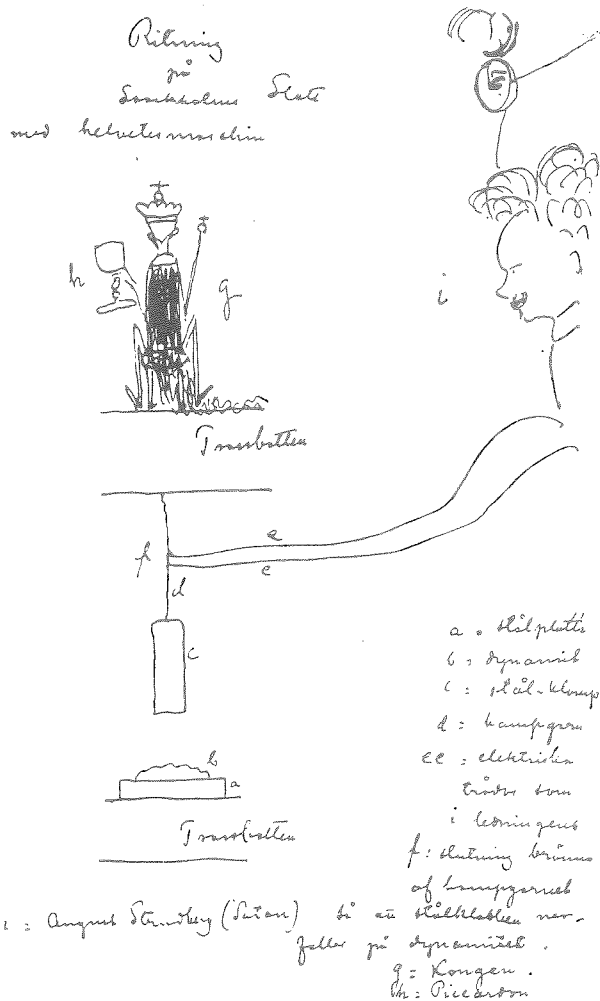 Ritning
på
Stockholms Slott
med helvetesmaskin
h
g
i
Trossbotten
e
f
e
d
c
b
a
Trossbotten
a = stålplatta
b = dynamit
c = stål-klump
d = hampgarn
ee = elektriska
trådar som
i ledningens
f: slutning bränna
af hampgarnet
i = August Strindberg (Satan) så att stålklubben ner-
faller på dynamiten.
g = Kongen.
h =